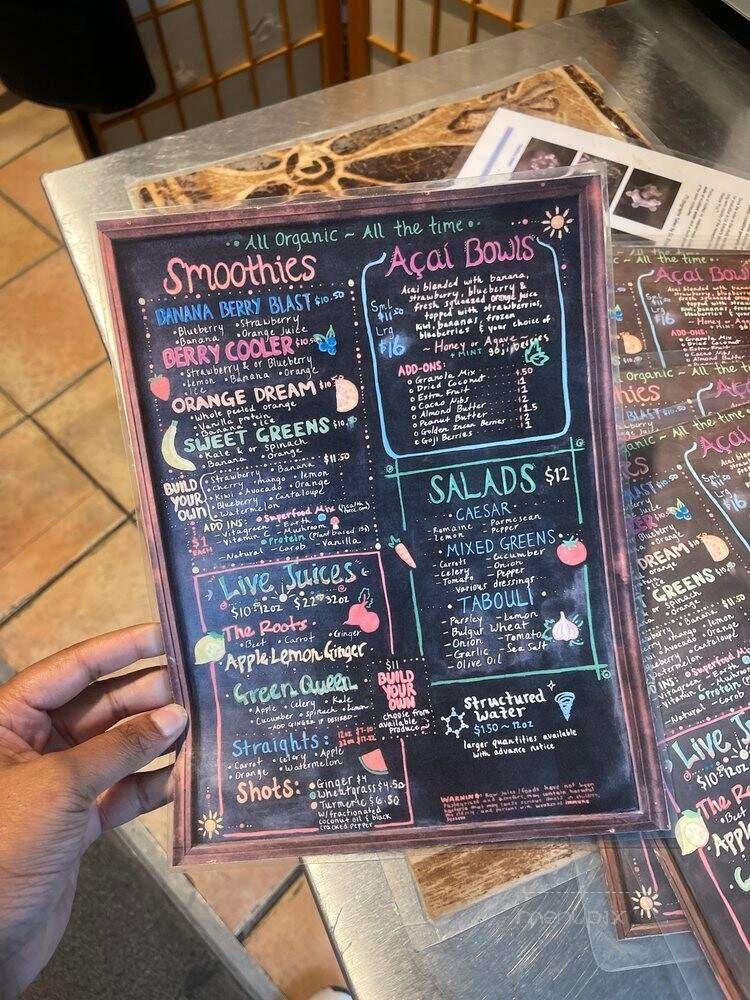 All Organic ~ All the time
Smoothies
BANANA BERRY BLAST $10.50
• Blueberry • Strawberry
• Banana • Orange Juice
BERRY COOLER $10.50
• Strawberry & or Blueberry
• Lemon • Banana • Orange
• Ice
ORANGE DREAM $10
• Whole peeled orange
• Vanilla protein
• Banana • ice
SWEET GREENS $10
• Kale & or spinach
• Banana • Orange
BUILD YOUR OWN
$11.50
• Strawberry • Banana
• Cherry • Mango • Lemon
• Kiwi • Avocado • Orange
• Blueberry • Cantaloupe
• Watermelon
ADD INS: • Superfood Mix
$1 EACH
- Vitagreen - Earth
- Vitamin C - Mushroom
• Protein (Plant based 15g)
- Natural - Carob - Vanilla
Live Juices
$10 12oz $22 32oz
The Roots
• Beet • Carrot • Ginger
Apple Lemon Ginger
Green Queen
• Apple • Celery • Kale
• Cucumber • Spinach • Lemon
- ADD GINGER IF DESIRED -
Straights:
Carrot • Celery • Apple
Orange • Watermelon
Shots:
• Ginger $4
• Wheatgrass $4.50
• Turmeric $6.50
w/fractionated
coconut oil & black
cracked pepper
$11
BUILD
YOUR
OWN
choose from
available
produce
Açaí Bowls
Açaí blended with banana,
strawberry, blueberry &
fresh squeezed orange juice
topped with strawberries,
kiwi, banana, frozen
blueberries & your choice of
Honey or Agave
Sml
$11.50
Lrg
$16
ADD-ONS:
• Granola Mix .50
• Dried Coconut 1
• Extra Fruit 1
• Cacao Nibs 1
• Almond Butter 2
• Peanut Butter 1.5
• Golden Incan Berries 2
• Goji Berries 1
SALADS $12
• CAESAR •
- Romaine - Parmesean
- Lemon - Peper
• MIXED GREENS
- Carrots - Cucumber
- Celery - Onion
- Tomato - Pepper
various dressings
• TABOULI •
- Parsley - Lemon
- Bulgur Wheat
- Onion - Tomato
- Garlic - Sea Salt
- Olive Oil
Structured
Water
$1.50 ~ 12oz
larger quantities available
with advance notice
WARNING: Raw juice/foods have not been
menupix